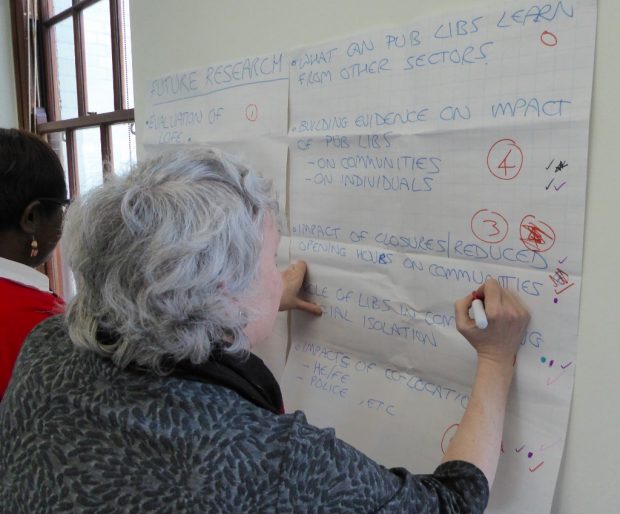 FUTURE RESEARCH
• EVALUATION OF
1
• WHAT CAN PUB LIBS LEARN
FROM OTHER SECTORS?
0
• BUILDING EVIDENCE ON IMPACT
OF PUB LIBS
– ON COMMUNITIES
4
– ON INDIVIDUALS
3
• IMPACT OF CLOSURES/REDUCED
OPENING HOURS ON COMMUNITIES
OF LIBS IN
ISOLATION
• IMPACTS OF
– HE/FE
– POLICE, ETC